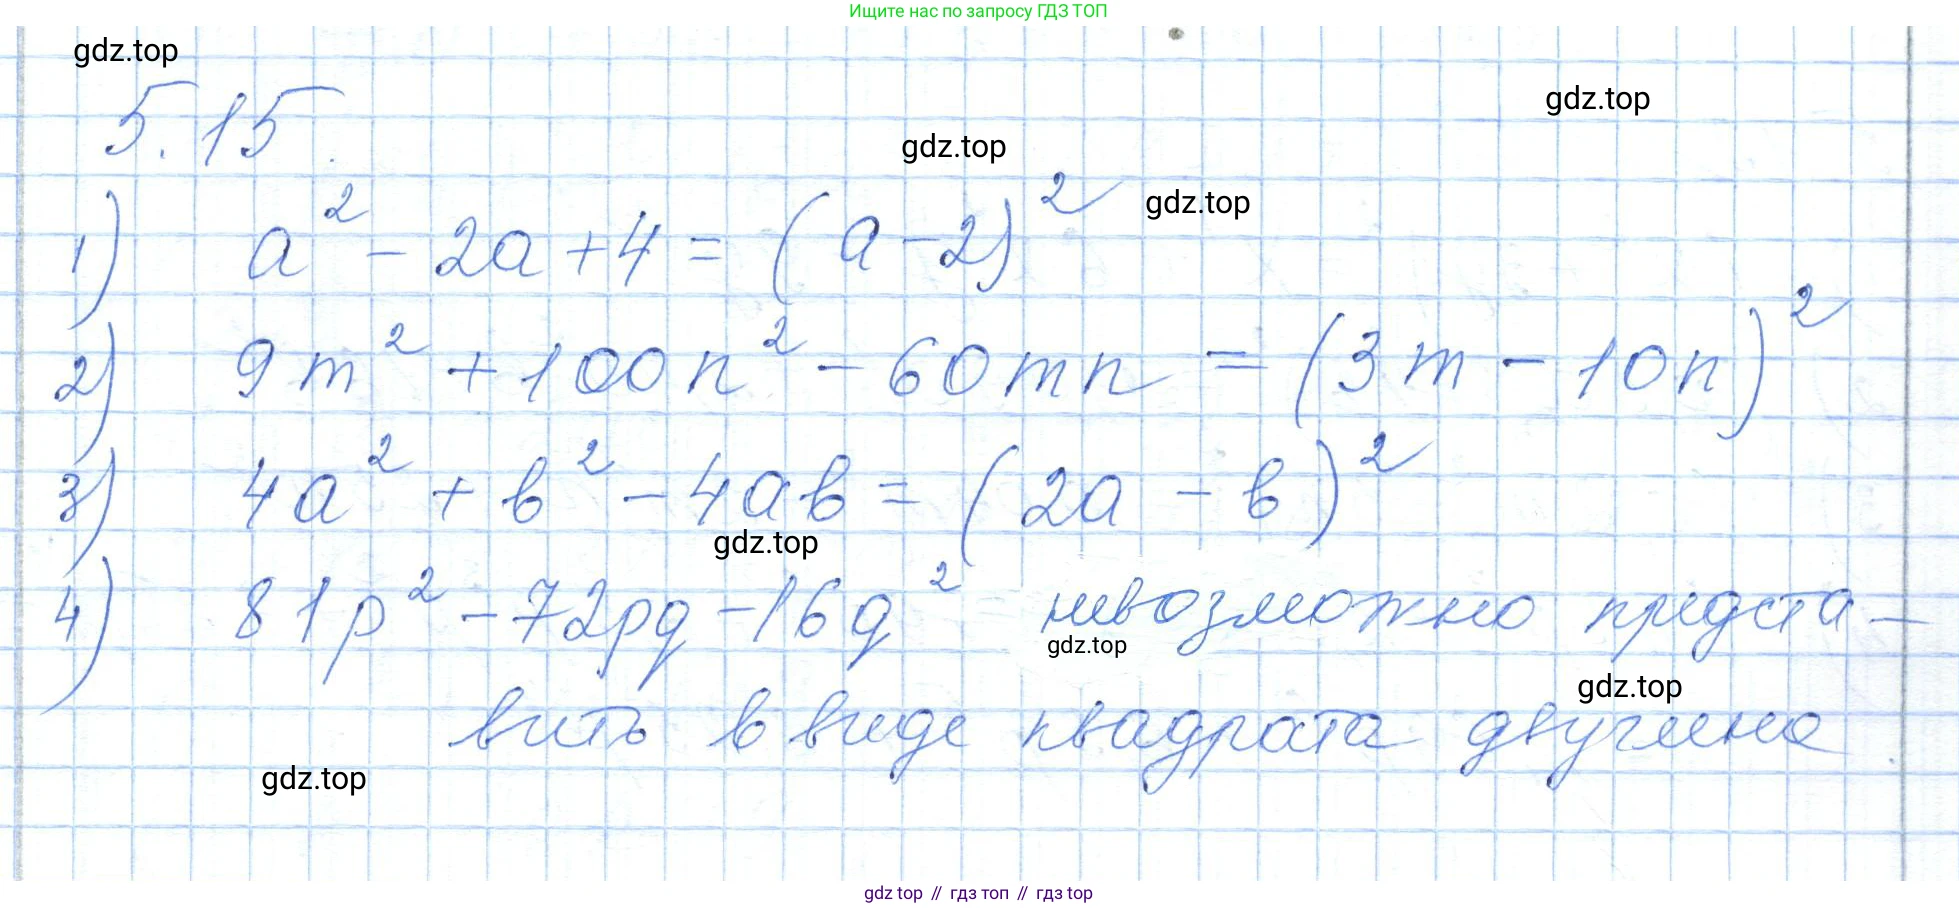 Ищите нас по запросу ГДЗ ТОП
gdz.top
gdz.top
5.15.
gdz.top
gdz.top
1) a² - 2a + 4 = (a - 2)²
2) 9m² + 100n² - 60mn = (3m - 10n)²
3) 4a² + b² - 4ab = (2a - b)²
gdz.top
4) 81p² - 72pq - 16q² невозможно предста-
gdz.top
gdz.top
вить в виде квадрата двучлена
gdz.top
gdz top // гдз топ // гдз top